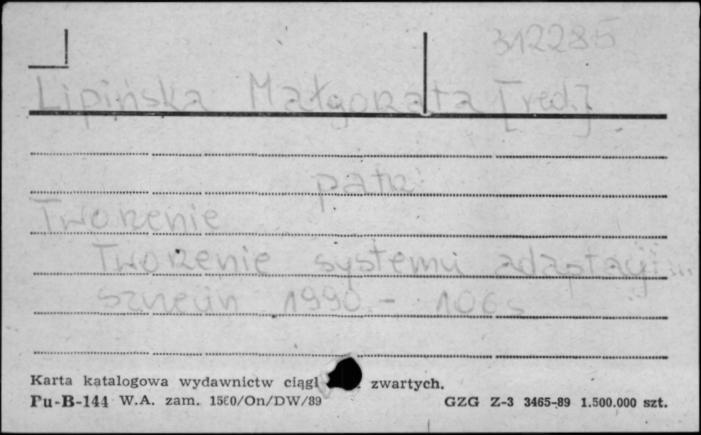 312285
Lipińska Małgorzata [red.]
patrz
Tworzenie
Tworzenie systemu adaptacji...
Szczecin 1990.- 106 s
Karta katalogowa wydawnictw ciągł zwartych.
Pu-B-144 W.A. zam. 1560/On/DW/89 GZG Z-3 3465-89 1.500.000 szt.